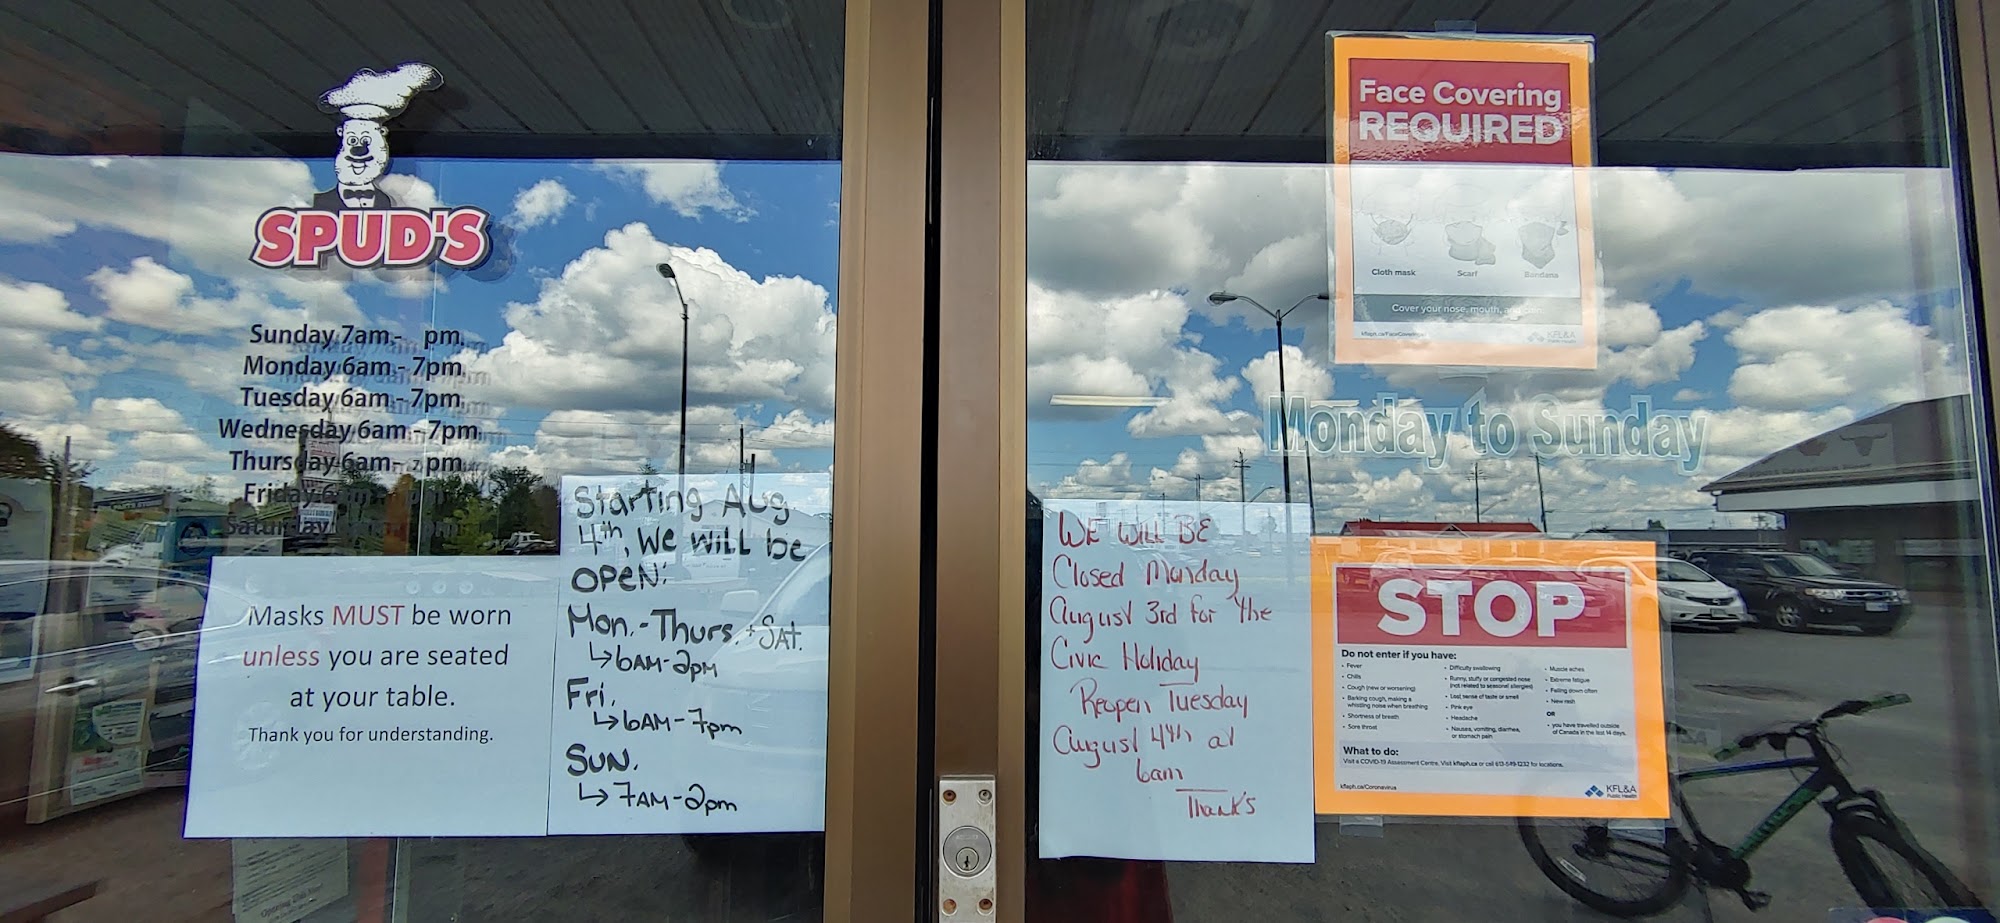 SPUD'S
Sunday 7am - pm
Monday 6am - 7pm
Tuesday 6am - 7pm
Wednesday 6am - 7pm
Thursday 6am - 7pm
Friday
Saturday
Masks MUST be worn
unless you are seated
at your table.
Thank you for understanding.
Starting Aug
4th, we will be
open:
Mon.-Thurs. + Sat.
↳ 6AM-2pm
Fri.
↳ 6AM-7pm
Sun.
↳ 7AM-2pm
WE WILL BE
Closed Monday
August 3rd for the
Civic Holiday
Reopen Tuesday
August 4th at
6am
Thank's
Face Covering
REQUIRED
Cloth mask Scarf Bandana
Cover your nose, mouth, and
KFL&A
Public Health
Monday to Sunday
STOP
Do not enter if you have:
• Fever
• Chills
• Cough (new or worsening)
• Barking cough, making a
whistling noise when breathing
• Shortness of breath
• Sore throat
• Difficulty swallowing
• Runny, stuffy or congested nose
(not related to seasonal allergies)
• Lost sense of taste or smell
• Pink eye
• Headache
• Nausea, vomiting, diarrhea,
or stomach pain
• Muscle aches
• Extreme fatigue
• Falling down often
• New rash
OR
• you have travelled outside
of Canada in the last 14 days.
What to do:
Visit a COVID-19 Assessment Centre. Visit kflaph.ca or call 613-549-1232 for locations.
kflaph.ca/Coronavirus
KFL&A
Public Health